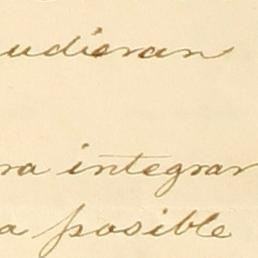 udieran
ra integrar
a posible